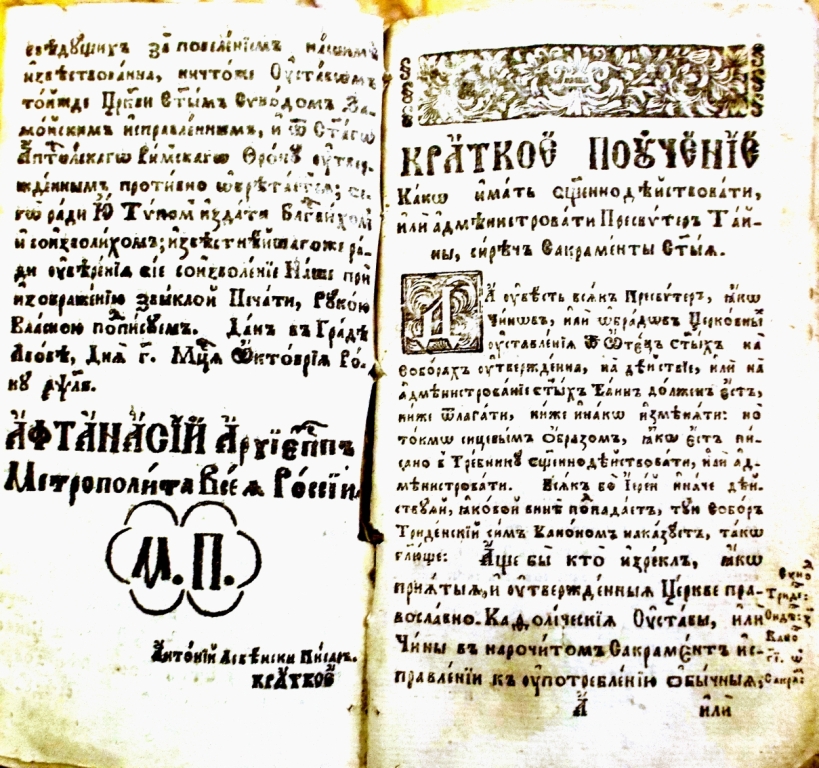 свѣдущихъ за повелѣнїемъ нашимъ
извѣствованна, ничтоже Оуставѡмъ
тоиждє Цр҃кви Ст҃ымъ Сѵнодомъ За-
мойскимъ исправленнымъ, и ѿ Ст҃агѡ
Ап҃толскагѡ Римскагѡ Ѳрону оутвер-
жденнымъ противно ѡбрѣтается; се-
гѡ ради Ю Тѵпом издати Бл҃гвихом
и соизволихом; извѣстнѣйшагоже ра-
ди оувѣренїя сїе соизволенїе Наше при
изображенїю звыклой Печати, Рукою
Власною подписуем. Данъ въ Градѣ
Лвовѣ, Дня г҃. Мц҃я Ѻктоврїя Ро-
ку
АѲТАНАСЇЙ Архїепп҃ъ
Метрополита Всея Россїи
М. П.
Антонїй Левѣнски Писар.
КРАТКОЕ
КРАТКОЕ ПОУЧЕНЇЕ
Какѡ имать сщ҃еннодѣйствовати,
или адмѣнистровати Пресвѵтеръ Тай-
ны, сирѣчъ Сакраменты Ст҃ыя.
ДА оувѣсть всякъ Пресвѵтеръ, ꙗкѡ
Чинѡвъ, или ѡбрядѡвъ Церковны
оуставленїя ѿ Отецъ Ст҃ыхъ на
Соборахъ оутвержденна, на дѣйствїе, или на
адмѣнистрованїе ст҃ыхъ Таинъ долженъ єстъ,
ниже ѿлагати, ниже инакѡ измѣняти: но
токмѡ сицевымъ Образомъ, ꙗкѡ єстъ пи-
сано в Требнику сщ҃еннодѣйствовати, или ад-
мѣнистровати. Всякъ бо Їерей иначе дѣй-
ствуяй, ꙗковой винѣ подпадаєтъ, туй Соборъ
Триденскїй симъ Канономъ наказуєтъ, такѡ
гл҃юще: Аще бы кто изреклъ, ꙗкѡ
прїятыя, и оутвержденныя Церкве пра-
вославно-Каѳолїческїя Оуставы, или
Чины въ нарочитомъ Сакраментъ ис-
правленїи къ оупотребленїю обычныя,
Сѵно
Триде:
Сид: з҃
Кано
гї. ѡ
Сакра:
А или